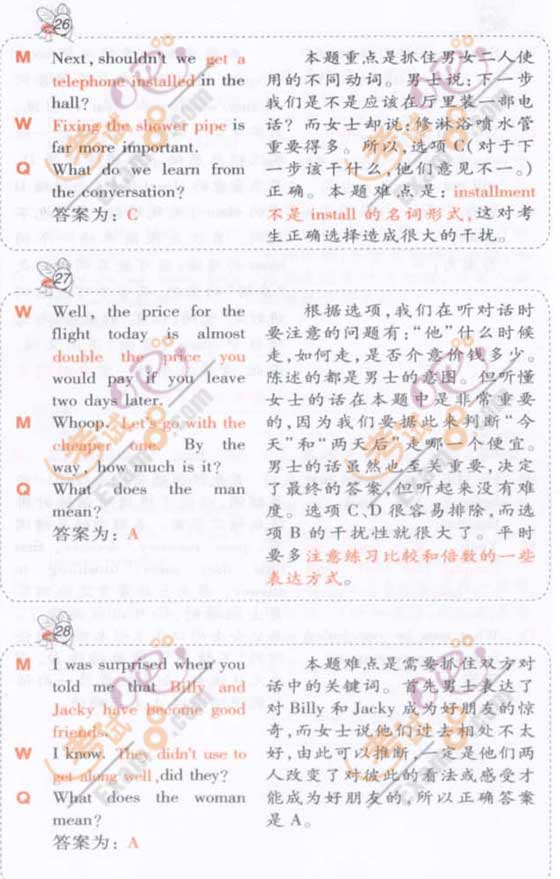 26
M Next, shouldn't we get a
telephone installed in the
hall?
W Fixing the shower pipe is
far more important.
Q What do we learn from
the conversation?
答案为: C
本题重点是抓住男女二人使
用的不同动词。男士说:下一步
我们是不是应该在厅里装一部电
话?而女士却说:修淋浴喷水管
重要得多。所以,选项C(对于下
一步该干什么,他们意见不一。)
正确。本题难点是:installment
不是 install 的名词形式,这对考
生正确选择造成很大的干扰。
27
W Well, the price for the
flight today is almost
double the price you
would pay if you leave
two days later.
M Whoop. Let's go with the
cheaper one. By the
way, how much is it?
Q What does the man
mean?
答案为: A
根据选项,我们在听对话时
要注意的问题有:“他”什么时候
走,如何走,是否介意价钱多少。
陈述的都是男士的意图。但听懂
女士的话在本题中是非常重要
的,因为我们要据此来判断“今
天”和“两天后”走哪一个便宜。
男士的话虽然也至关重要,决定
了最终的答案,但听起来没有难
度。选项C、D很容易排除,而选
项B的干扰性就很大了。平时
要多注意练习比较和倍数的一些
表达方式。
28
M I was surprised when you
told me that Billy and
Jacky have become good
friends.
W I know. They didn't use to
get along well, did they?
Q What does the woman
mean?
答案为: A
本题难点是需要抓住双方对
话中的关键词。首先男士表达了
对 Billy 和 Jacky 成为好朋友的惊
奇,而女士说他们过去相处不太
好,由此可以推断,一定是他们两
人改变了对彼此的看法或感受才
能成为好朋友的,所以正确答案
是A。